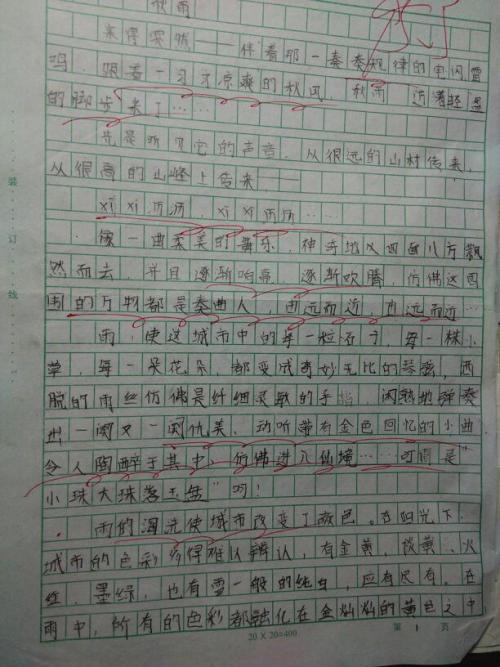 秋雨
来得突然——伴着那一奏奏规律的电闪雷
鸣，跟着一习习凉爽的秋风，秋雨，迈着轻盈
的脚步来了……
先是听见它的声音，从很远的山村传来，
从很高的山峰上传来——
xī xī 沥沥，xī xī 沥沥……
像一曲柔美的音乐，神奇地从四面八方飘
然而去，并且逐渐响亮，逐渐欢腾，仿佛这四
围的万物都是奏曲人，由远而近，由远而近…
雨，使这城市中的每一粒石子，每一株小
草，每一朵花朵，都变成奇妙无比的琴弦，洒
脱的雨丝仿佛是纤细灵敏的手指，闲熟地弹奏
出一阕又一阕优美、动听带有金色回忆的小曲
令人陶醉于其中，仿佛进入仙境……可谓是"
小珠大珠落玉盘"啊！
雨的润洗使城市改变了颜色。在阳光下，
城市的色彩 得难以辨认，有金黄、淡黄、火
红、墨绿，也有雪一般的纯白，应有尽有。在
雨中，所有的色彩都融化在金灿灿的黄色之中
20×20=400
第 1 页
装 订 线